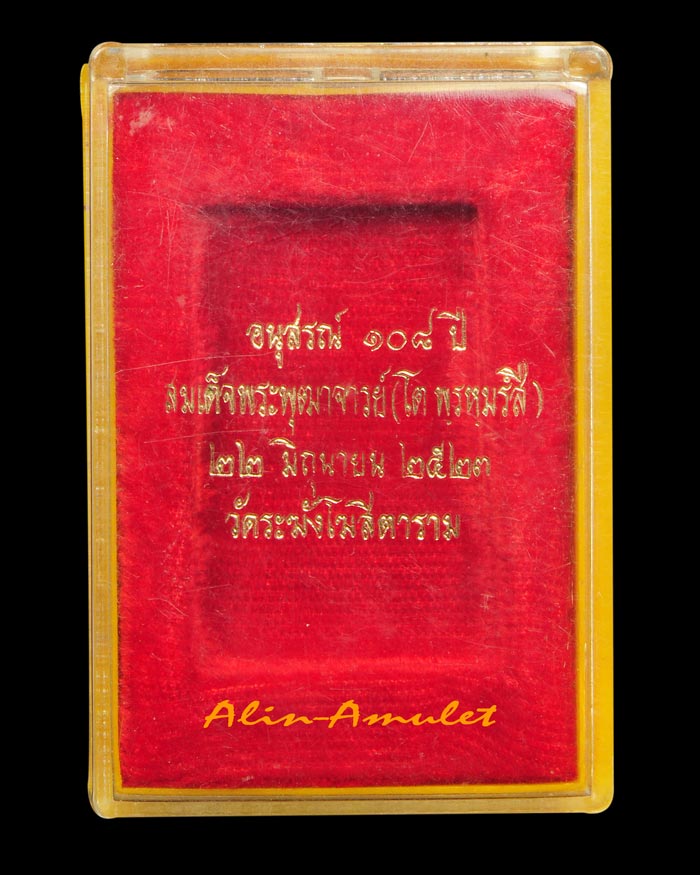 อนุสรณ์ ๑๐๘ ปี
สมเด็จพระพุฒาจารย์ (โต พฺรหฺมรํสี)
๒๒ มิถุนายน ๒๕๒๓
วัดระฆังโฆสิตาราม
Alin-Amulet